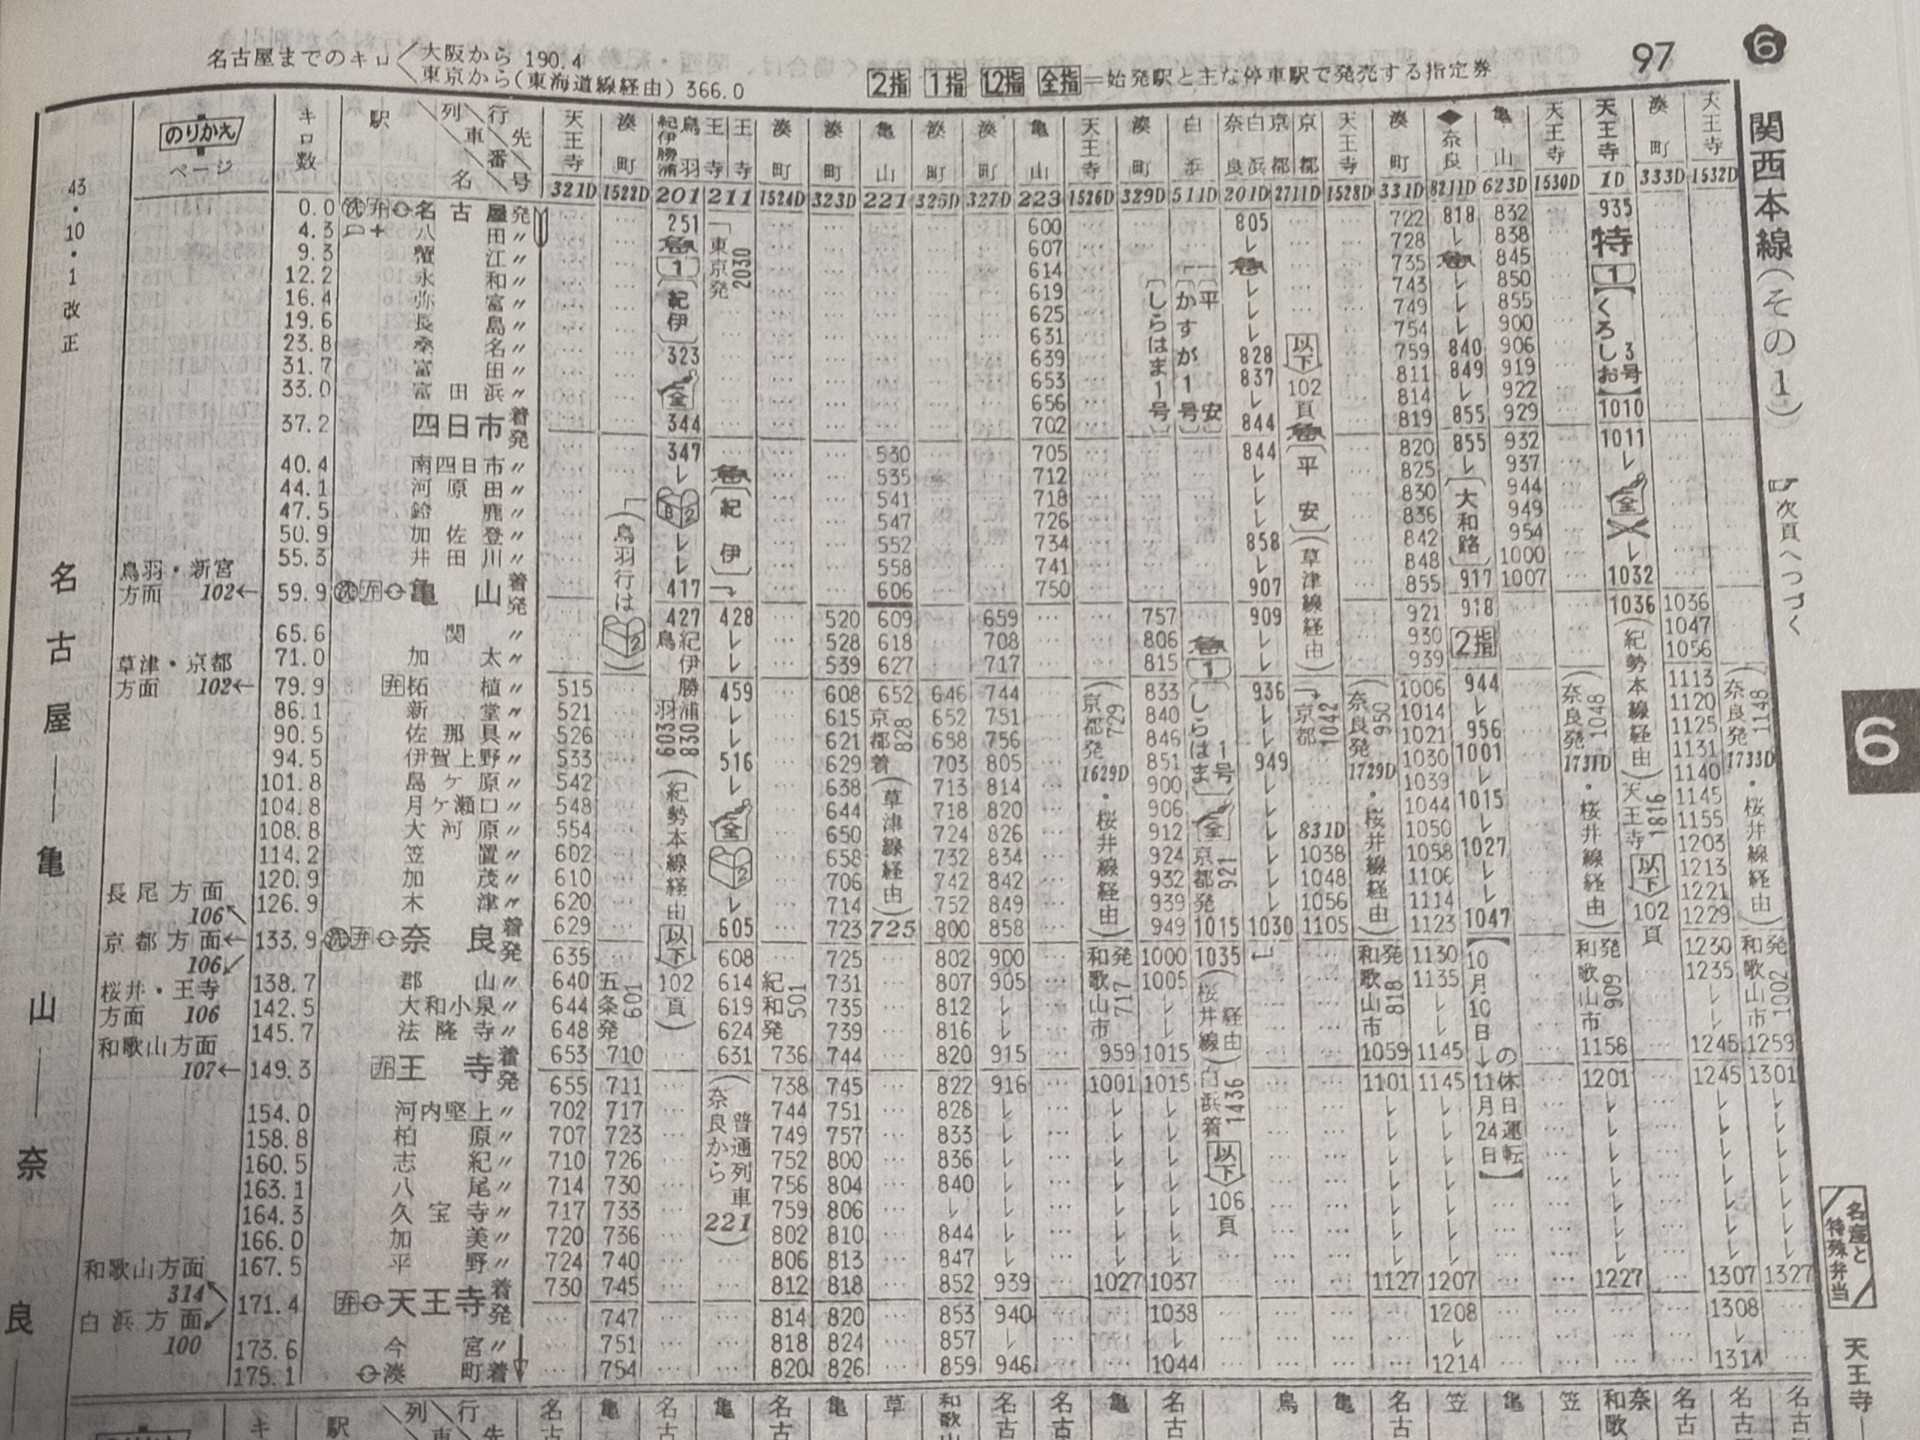 名古屋までのキロ 大阪から 190.4
東京から(東海道線経由) 366.0
2指 1指 12指 全指=始発駅と主な停車駅で発売する指定券
97 6
関西本線(その1)
☞次頁へつづく
43・10・1改正
名古屋―亀山―奈良―
のりかえ
ページ
キロ数
駅名
列車番号
行先
天王寺 湊町 紀伊勝浦 鳥羽 王寺 王寺 湊町 湊町 亀山 湊町 湊町 亀山 天王寺 湊町 白浜 奈良 白浜 京都 京都 天王寺 湊町 ◆奈良 亀山 天王寺 天王寺 湊町 天王寺
321D 1522D 201 211 1524D 323D 221 325D 327D 223 1526D 329D 511D 201D 2711D 1528D 331D 8211D 623D 1530D 1D 333D 1532D
0.0 名古屋発 251 600 805 722 818 832 935
4.3 八田〃 607 728 838 特
9.3 蟹江〃 614 735 845
12.2 永和〃 619 743 850
16.4 弥富〃 625 749 855
19.6 長島〃 631 754 900
23.8 桑名〃 323 639 828 759 840 906
31.7 富田〃 653 837 811 849 919
33.0 富田浜〃 656 814 922
37.2 四日市着 344 702 844 819 855 929 1010
発 347 530 705 844 820 855 932 1011
40.4 南四日市〃 535 712 825 937
44.1 河原田〃 541 718 830 944
47.5 鈴鹿〃 547 726 836 949
50.9 加佐登〃 552 734 858 842 954
55.3 井田川〃 558 741 848 1000
鳥羽・新宮方面 102←
59.9 亀山着 417 606 750 907 855 917 1007 1032
発 427 428 520 609 659 757 909 921 918 1036 1036
65.6 関〃 528 618 708 806 930 1047
71.0 加太〃 539 627 717 815 939 1056
草津・京都方面 102←
79.9 柘植〃 515 459 608 652 646 744 833 936 1006 944 1113
86.1 新堂〃 521 615 652 751 840 1014 1120
90.5 佐那具〃 526 621 658 756 846 1021 956 1125
94.5 伊賀上野〃 533 516 629 703 805 851 949 1030 1001 1131
101.8 島ケ原〃 542 638 713 814 900 1039 1140
104.8 月ケ瀬口〃 548 644 718 820 906 1044 1015 1145
108.8 大河原〃 554 650 724 826 912 831D 1050 1155
114.2 笠置〃 602 658 732 834 924 1038 1058 1027 1203
120.9 加茂〃 610 706 742 842 932 1048 1106 1213
126.9 木津〃 620 714 752 849 939 1056 1114 1221
長尾方面 106
京都方面 106
133.9 奈良着 629 605 723 725 800 858 949 1015 1030 1105 1123 1047 1229
発 635 608 725 802 900 1000 1035 1130 1230
138.7 郡山〃 640 614 731 807 905 1005 1135 1235
桜井・王寺方面 106
142.5 大和小泉〃 644 619 735 812
145.7 法隆寺〃 648 624 739 816
和歌山方面 107←
149.3 王寺着 653 710 631 736 744 820 915 959 1015 1059 1145 1158 1245 1259
発 655 711 738 745 822 916 1001 1015 1101 1145 1201 1245 1301
154.0 河内堅上〃 702 717 744 751 828
158.8 柏原〃 707 723 749 757 833
160.5 志紀〃 710 726 752 800 836
163.1 八尾〃 714 730 756 804 840
164.3 久宝寺〃 717 733 759 806
166.0 加美〃 720 736 802 810 844
167.5 平野〃 724 740 806 813 847
和歌山方面 314
白浜方面 100
171.4 天王寺着 730 745 812 818 852 939 1027 1037 1127 1207 1227 1307 1327
発 747 814 820 853 940 1038 1208 1308
173.6 今宮〃 751 818 824 857
175.1 湊町着 754 820 826 859 946 1044 1214 1314
(鳥羽行は)
急
【紀伊】
鳥羽 603
紀伊勝浦 830
(紀勢本線経由)
以下102頁
東京発 2030
急【紀伊】
(奈良から普通列車221)
五条発 601
紀和発 501
京都着 828
(草津線経由)
(京都発 729)
1629D・桜井線経由)
和歌山市発 717
【しらはま1号】
【かすが1号】
平安
急
【しらはま1号】
京都発 921
(桜井線経由)
(白浜着 1436)
以下106頁
以下102頁
急【平安】
(草津線経由)
京都 1042
(奈良発 950
1729D・桜井線経由)
和歌山市発 818
急
【大和路】
2指
【10月10日→11月24日の休日運転】
(奈良発 1048
1731D・桜井線経由)
和歌山市発 909
【くろしお3号】
(紀勢本線経由)
(天王寺 1816)
以下102頁
(奈良発 1148
1733D・桜井線経由)
和歌山市発 1002
6
名産と特殊弁当
天王寺
キ 駅 列車 行先
名古 亀 名古 亀 名古 亀 草 和歌山 名古 名古 亀 名古 鳥 亀 名古 笠 亀 笠 和歌 奈 名古 名古 名古